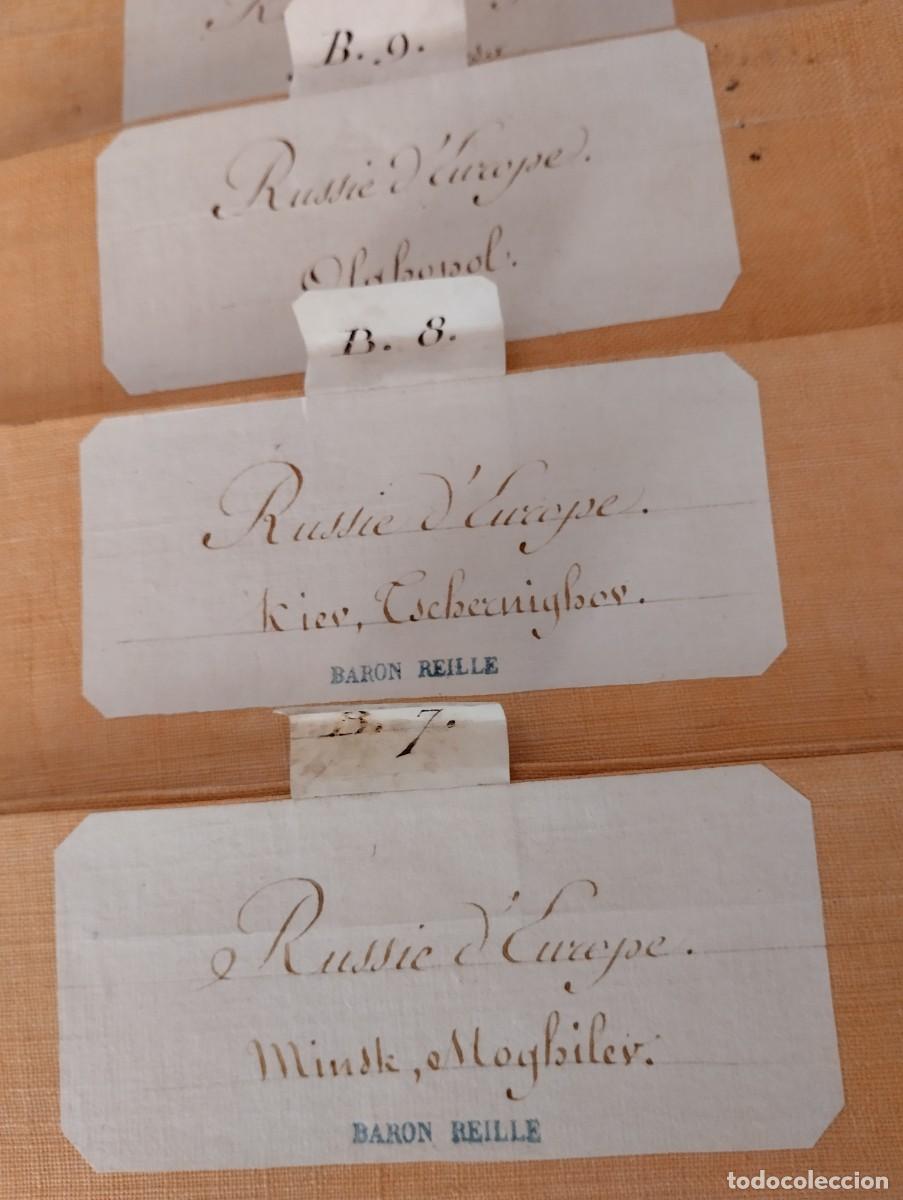 B. 9.
Russie d'Europe.
Olghopol.
B. 8.
Russie d'Europe.
Kiev, Tschernighov.
BARON REILLE
B. 7.
Russie d'Europe.
Minsk, Moghilev.
BARON REILLE
todocoleccion